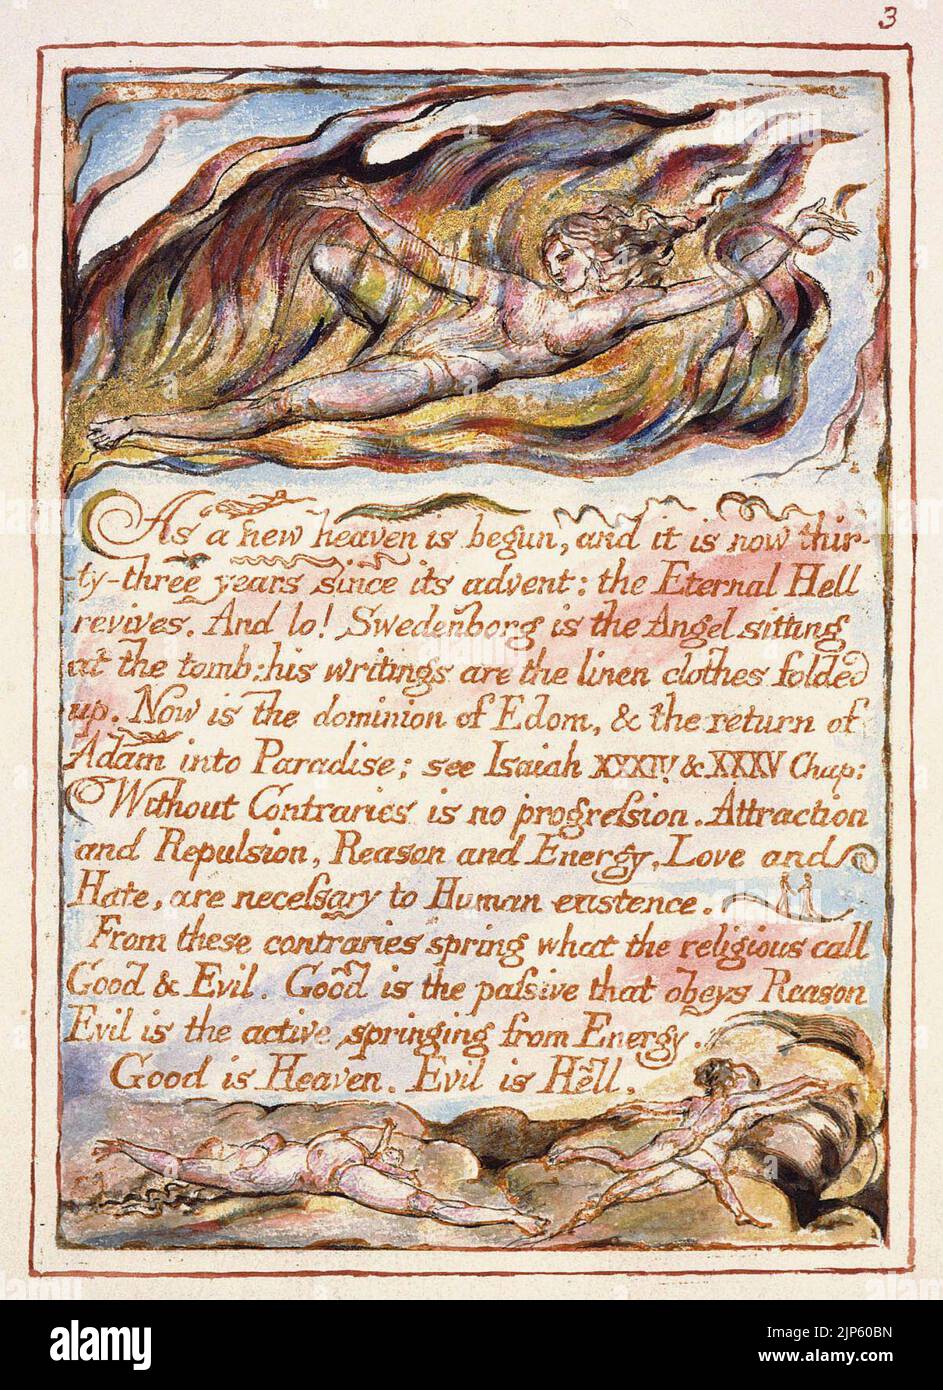 3
As a new heaven is begun, and it is now thir-
-ty-three years since its advent: the Eternal Hell
revives. And lo! Swedenborg is the Angel sitting
at the tomb: his writings are the linen clothes folded
up. Now is the dominion of Edom, & the return of
Adam into Paradise; see Isaiah XXXIV & XXXV Chap:
Without Contraries is no progreſsion. Attraction
and Repulsion, Reason and Energy, Love and
Hate, are neceſsary to Human existence.
From these contraries spring what the religious call
Good & Evil. Good is the paſsive that obeys Reason
Evil is the active springing from Energy.
Good is Heaven. Evil is Hell.
alamy
Image ID: 2JP60BN
www.alamy.com